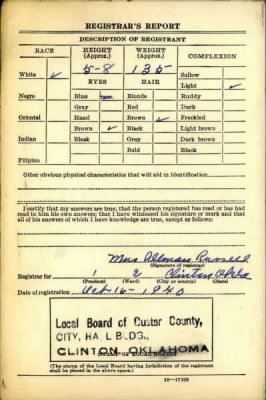 REGISTRAR'S REPORT
DESCRIPTION OF REGISTRANT
RACE HEIGHT (Approx.) WEIGHT (Approx.) COMPLEXION
5-8 135
White ✓ EYES HAIR Sallow
Light ✓
Negro Blue Blonde Ruddy
Gray Red Dark
Oriental Hazel Brown ✓ Freckled
Brown ✓ Black Light brown
Indian Black Gray Dark brown
Bald Black
Filipino
Other obvious physical characteristics that will aid in identification
I certify that my answers are true; that the person registered has read or has had read to him his own answers; that I have witnessed his signature or mark and that all of his answers of which I have knowledge are true, except as follows:
Mrs Russell
(Signature of registrar)
Registrar for 1 2 Clinton Okla
(Precinct) (Ward) (City or county) (State)
Date of registration Oct. 16 - 1940
Local Board of Custer County,
CITY, HALL BLDG.,
CLINTON, OKLAHOMA
(The stamp of the Local Board having jurisdiction of the registrant
shall be placed in the above space.)